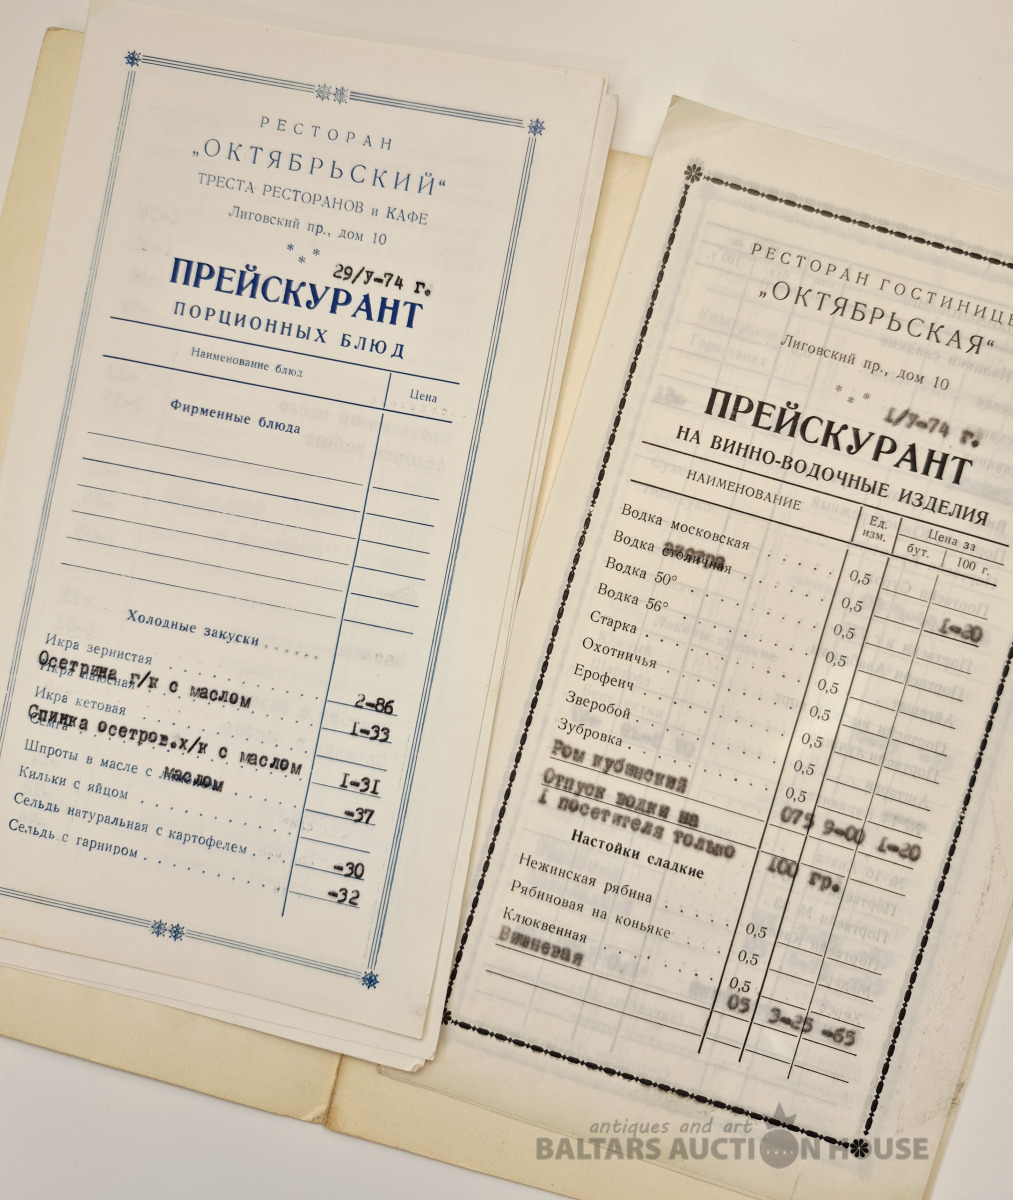 РЕСТОРАН
„ОКТЯБРЬСКИЙ“
ТРЕСТА РЕСТОРАНОВ и КАФЕ
Лиговский пр., дом 10
29/У-74 г.
ПРЕЙСКУРАНТ
ПОРЦИОННЫХ БЛЮД
Наименование блюд Цена
Фирменные блюда
Холодные закуски . . . . . .
Икра зернистая
Осетрина г/к с маслом 2-86
Икра паюсная
Икра кетовая 1-33
Спинка осетров.х/к с маслом 1-31
Семга
Шпроты в масле с маслом -37
Кильки с яйцом
Сельдь натуральная с картофелем -30
Сельдь с гарниром -32
РЕСТОРАН ГОСТИНИЦЫ
„ОКТЯБРЬСКАЯ“
Лиговский пр., дом 10
1/У-74 г.
ПРЕЙСКУРАНТ
НА ВИННО-ВОДОЧНЫЕ ИЗДЕЛИЯ
НАИМЕНОВАНИЕ Ед. изм. Цена за
бут. 100 г.
Водка московская 0,5
Водка столичная 0,5 1-20
Водка 50° 0,5
Водка 56° 0,5
Старка 0,5
Охотничья 0,5
Ерофеич 0,5
Зверобой 0,5
Зубровка 0,5
Ром кубинский 075 9-00 1-20
Отпуск водки на
1 посетителя только 100 гр.
Настойки сладкие
Нежинская рябина 0,5
Рябиновая на коньяке 0,5
Клюквенная 0,5
Вишневая 05 3-25 -65
antiques and art
BALTARS AUCTION HOUSE